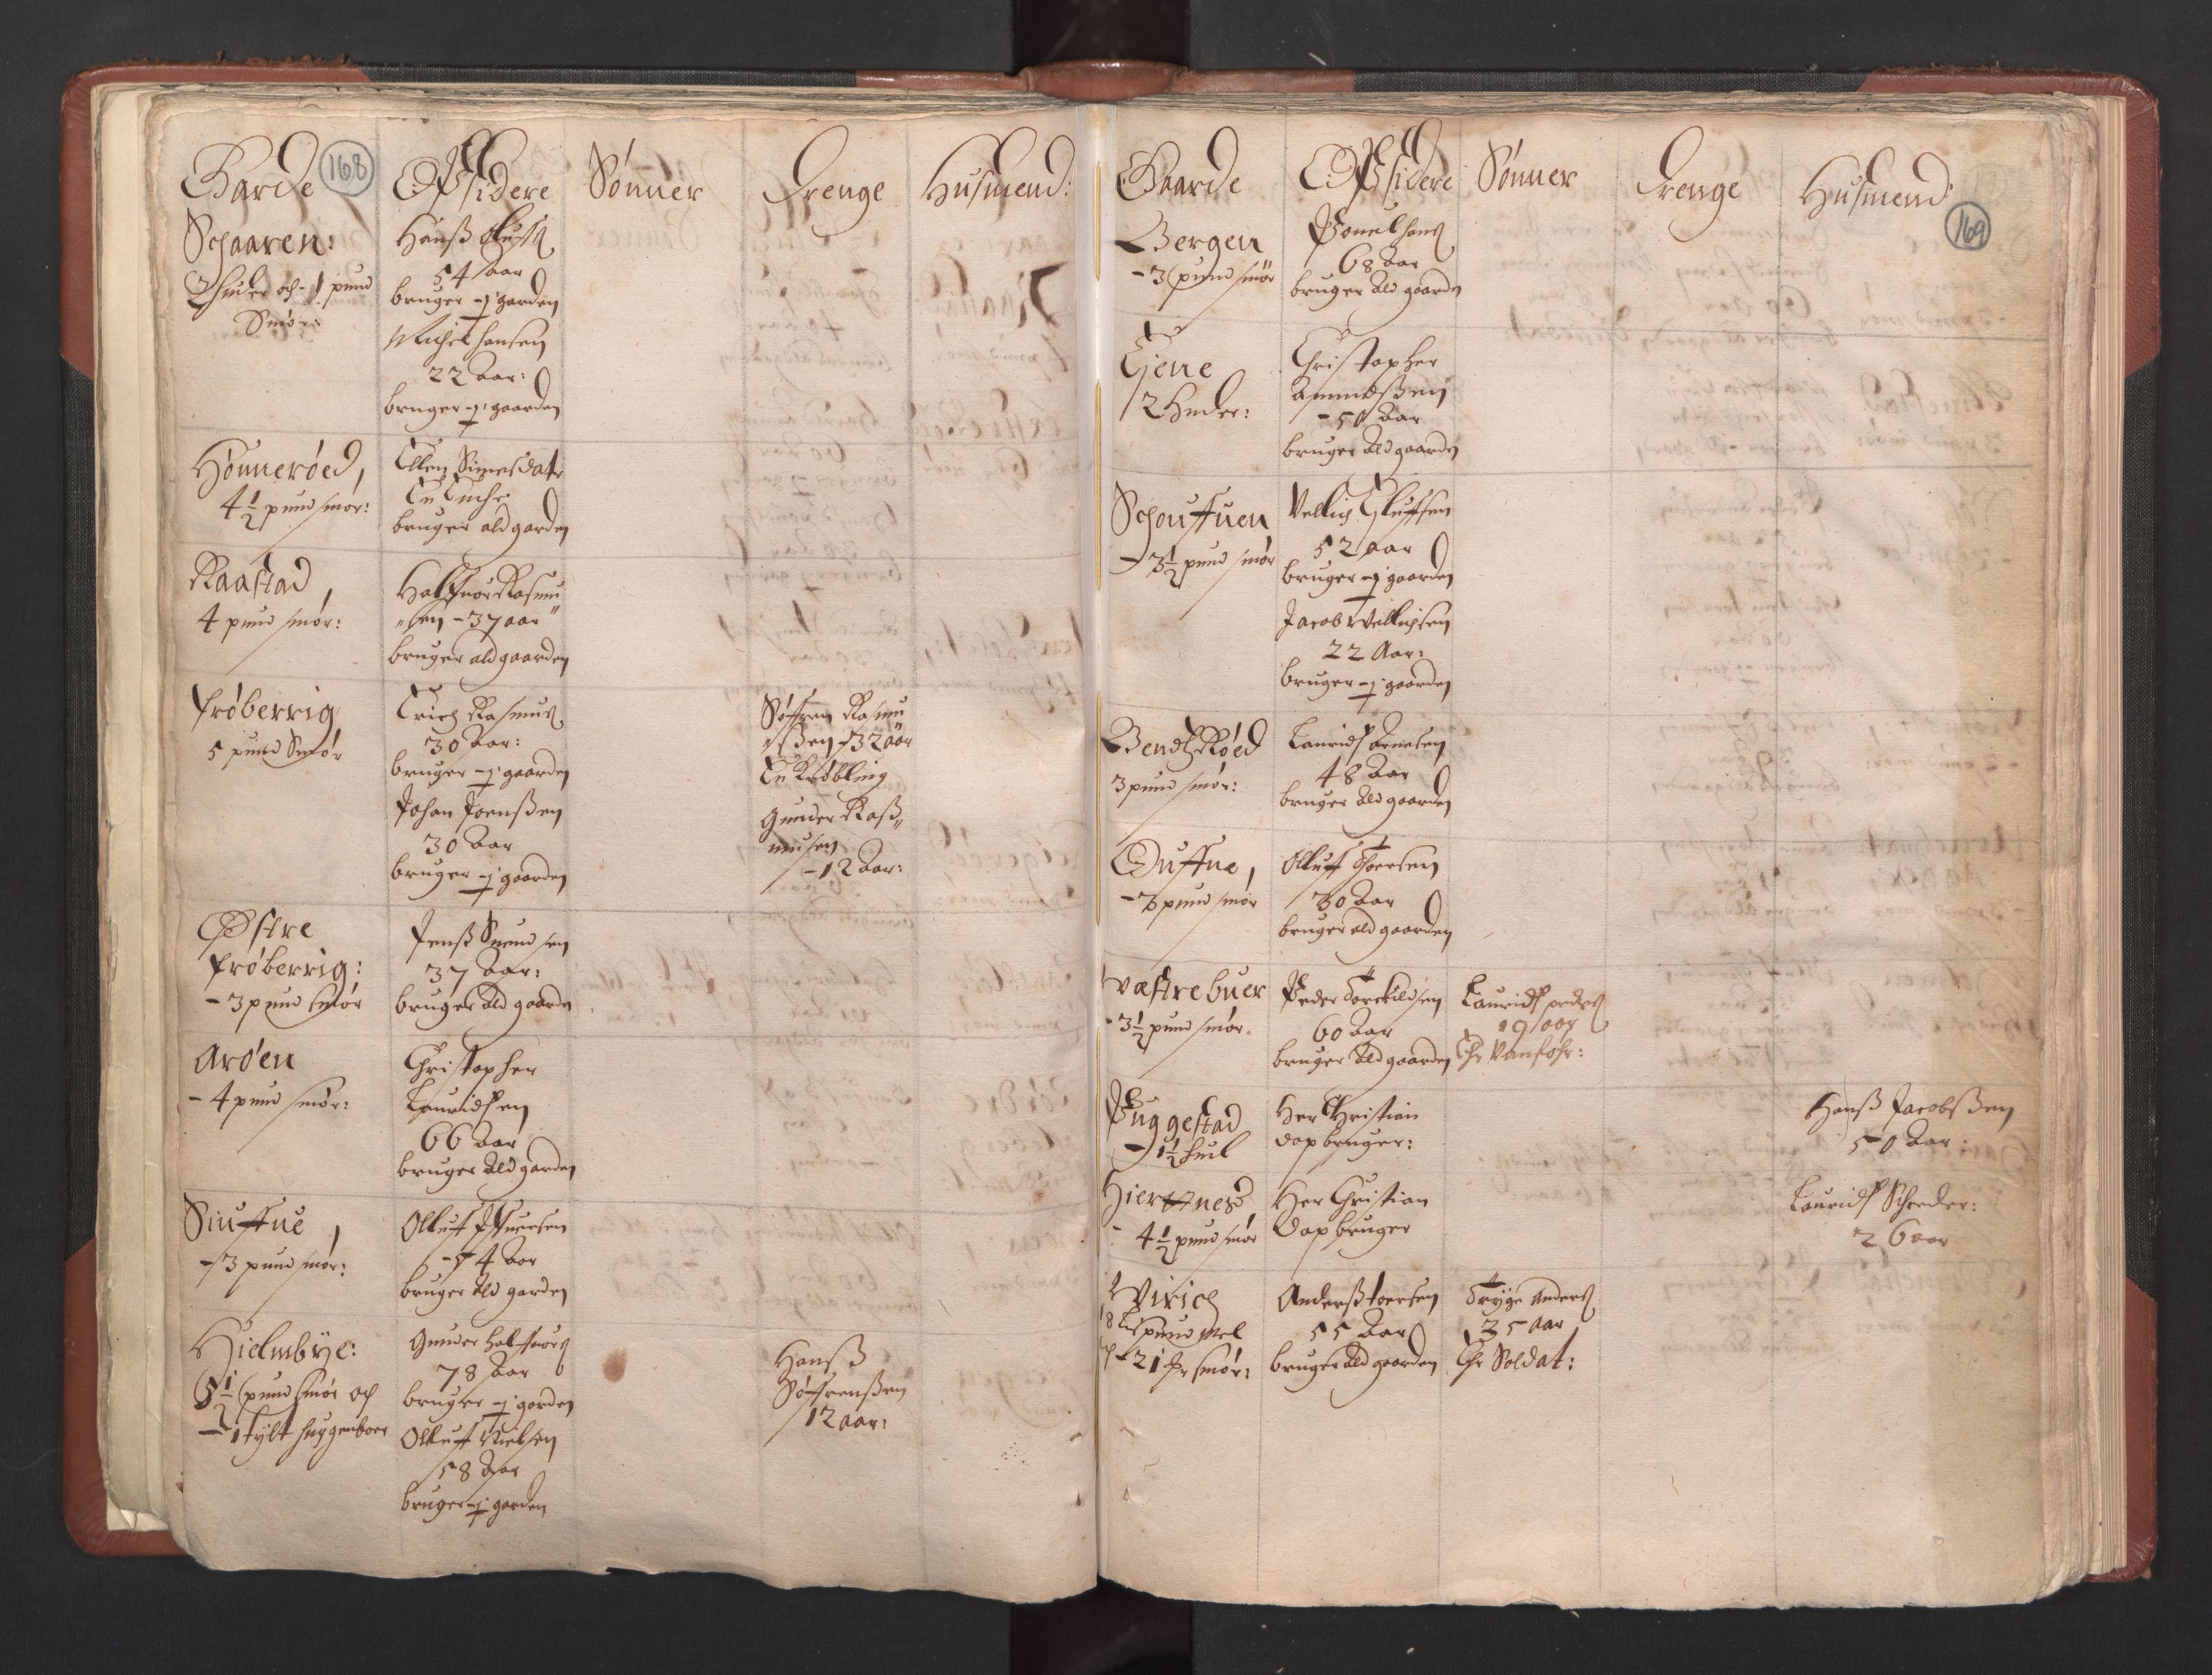 Garde
168
Opsidere
Sønner
Drenge
Husmend:
Schaaren:
2 huder och - 1 pund
Smør:
Hanß Olufs
54 Aar
bruger - ½ garden
Michel hansen
22 Aar:
bruger - ½ gaarden
Hønnerøed,
4½ pund smør:
Ellen Simensdatr
En Enche
bruger ald garden
Raastad,
4 pund smør:
Halffuor Rasmu
sen - 37 aar
bruger ald gaarden
Frøberrig
5 pund Smør
Erich Rasmus
30 Aar:
bruger - ½ gaarden
Johan Joenßen
30 Aar
bruger - ½ gaarden
Søffren Rasmu
ßen - 32 aar
En Krøbling
Gunder Raß
musen
- 12 Aar:
Østre
Frøberrig:
- 3 pund smør
Jenß Suendsen
37 Aar:
bruger ald gaarden
Arøen
- 4 pund smør:
Christopher
Lauridsen
66 Aar
bruger Ald garden
Siuffue,
- 3 pund smør:
Olluff Iffuersen
- 54 Aar
bruger Ald garden
Hielmbye:
5½ pund smør och
- 1 tylt huggenboer
Gunder Halffuors
78 Aar
bruger - ½ gorden
Olluff Nielsen
58 Aar
bruger - ½ garden
Hanß
Søffrenßen
12 aar:
Gaarde
Opsidere
Sønner
Drenge
Husmend:
169
Bergen
- 3 pund smør
Pouel hans
68 Aar
bruger Ald gaarden
Eiene
2 Huder:
Christopher
Amundßen
- 50 Aar
bruger Ald gaarden
Schouffuen
- 3½ pund smør
Vellich Oluffsen
52 aar
bruger - ½ gaarden
Jacob Vellichsen
22 Aar:
bruger - ½ gaarden
BendzRøed
3 pund smør:
Lauridz Arnesen
48 Aar
bruger Ald gaarden
Duffue,
- 3 pund smør
Olluff Thoersen
30 Aar
bruger ald gaarden
Væstrebuer
- 3½ pund smør.
Peder Torckildsen
60 Aar
bruger Ald gaarden
Lauridz peders
19 aar
Er Vanføhr:
Puggestad
- 1½ hud
Her Christian
Dop bruger:
Hanß Jacobßen
50 Aar:
Hiertnes
- 4½ pund smør
Her Christian
Dop bruger
Lauridz Schreder:
26 aar
Virich
8 Lispund Mel
- 21 mr smør:
Anderß toersen
55 Aar
bruger Ald gaarden
Tryge Anders
35 aar
Er Soldat: